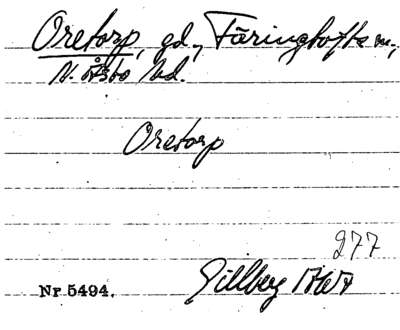 Oretorp, gd., Färingtofta sn.,
N. Åsbo hd.
Oretorp
277
Gillberg 1767
Nr 5494.